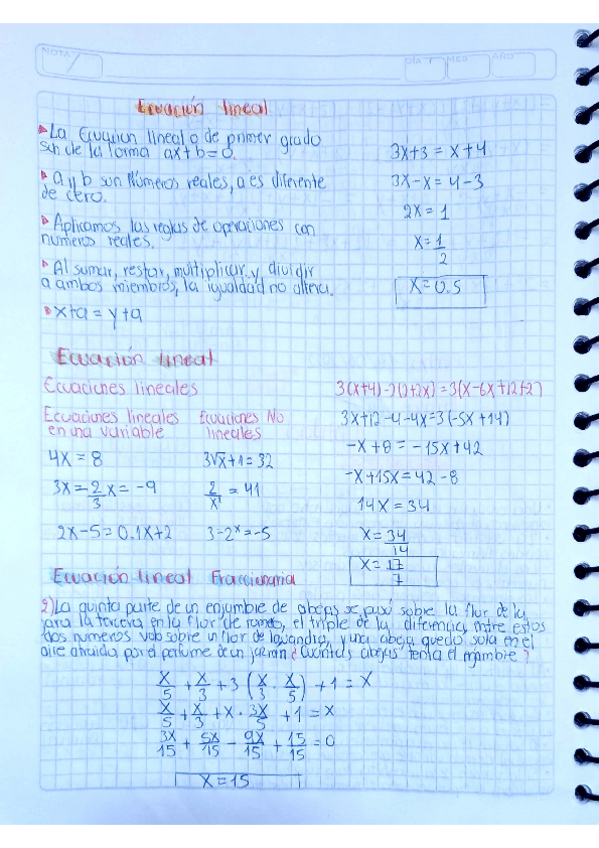 NOTA
DÍA MES AÑO
Ecuación lineal
La Ecuacion lineal o de primer grado
son de la forma ax+b=0.
a y b son Números reales, a es diferente
de cero.
Aplicamos las reglas de operaciones con
numeros reales.
Al sumar, restar, multiplicar y dividir
a ambos miembros, la igualdad no altera.
x+a = y+a
3x+3 = x+4
3x-x = 4-3
2x = 1
x = 1/2
x = 0.5
Ecuación lineal
Ecuaciones lineales
Ecuaciones lineales
en una variable
4x = 8
3x = 2/3 x = -9
2x-5 = 0.1x+2
Ecuaciones No
lineales
3√x+1 = 32
2/x = 41
3-2ˣ = -5
3(x+4)-2(2+2x) = 3(x-6x+12+2)
3x+12-4-4x = 3(-5x+14)
-x+8 = -15x+42
-x+15x = 42-8
14x = 34
x = 34/14
x = 17/7
Ecuación lineal Fraccionaria
2) La quinta parte de un enjambre de abejas se posó sobre la flor de
la tercera en la flor de romero, el triple de la diferencia entre estos
dos numeros sobre un flor de lavandia, y una abeja quedó sola en el
aire atraida por el perfume de un jazmin ¿Cuantas abejas tenia el enjambre?
x/5 + x/3 + 3(x/3 · x/5) + 1 = x
x/5 + x/3 + x · 3x/5 + 1 = x
3x/15 + 5x/15 - 9x/15 + 15/15 = 0
x = 15